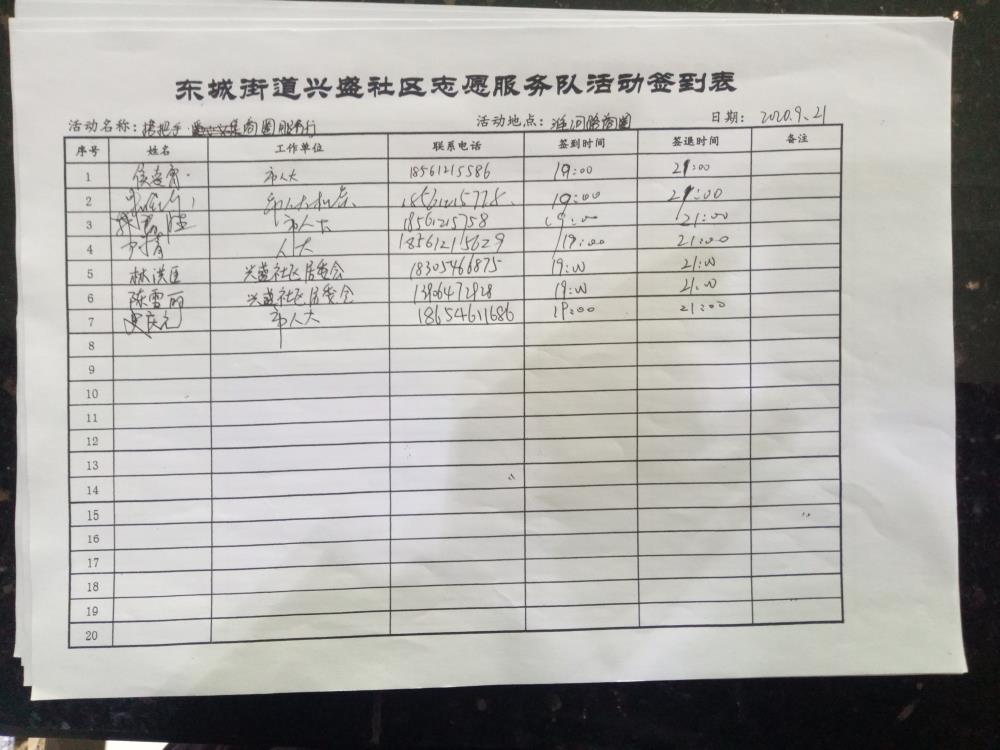 东城街道兴盛社区志愿服务队活动签到表
活动名称: 商圈 行 活动地点: 路商圈 日期: 2020.9.21
序号 姓名 工作单位 联系电话 签到时间 签退时间 备注
1 市人大 18561215586 19:00 21:00
2 市人大机关 19:00 21:00
3 市人大 18561215758 19:00 21:00
4 人大 18561215629 19:00 21:00
5 林洪臣 兴盛社区居委会 18305466875 19:00 21:00
6 陈雪丽 兴盛社区居委会 19:00 21:00
7 市人大 18654611686 19:00 21:00
8
9
10
11
12
13
14
15
16
17
18
19
20